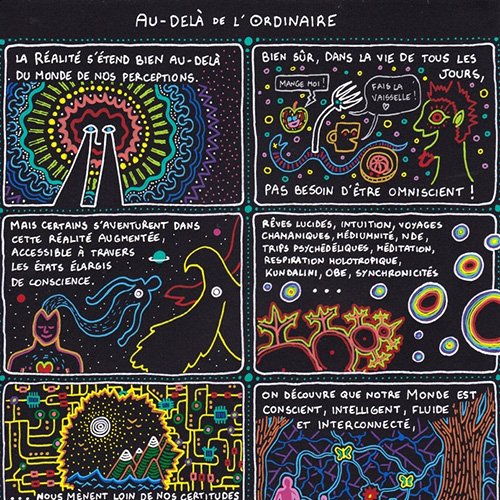 AU-DELÀ DE L'ORDINAIRE
LA RÉALITÉ S'ÉTEND BIEN AU-DELÀ
DU MONDE DE NOS PERCEPTIONS.
BIEN SÛR, DANS LA VIE DE TOUS LES
JOURS,
MANGE MOI !
FAIS LA
VAISSELLE !
PAS BESOIN D'ÊTRE OMNISCIENT !
MAIS CERTAINS S'AVENTURENT DANS
CETTE RÉALITÉ AUGMENTÉE,
ACCESSIBLE À TRAVERS
LES ÉTATS ÉLARGIS
DE CONSCIENCE.
RÊVES LUCIDES, INTUITION, VOYAGES
CHAMANIQUES, MÉDIUMNITÉ, NDE,
TRIPS PSYCHÉDÉLIQUES, MÉDITATION,
RESPIRATION HOLOTROPIQUE,
KUNDALINI, OBE, SYNCHRONICITÉS
...
... NOUS MÈNENT LOIN DE NOS CERTITUDES
ON DÉCOUVRE QUE NOTRE MONDE EST
CONSCIENT, INTELLIGENT, FLUIDE
ET INTERCONNECTÉ,